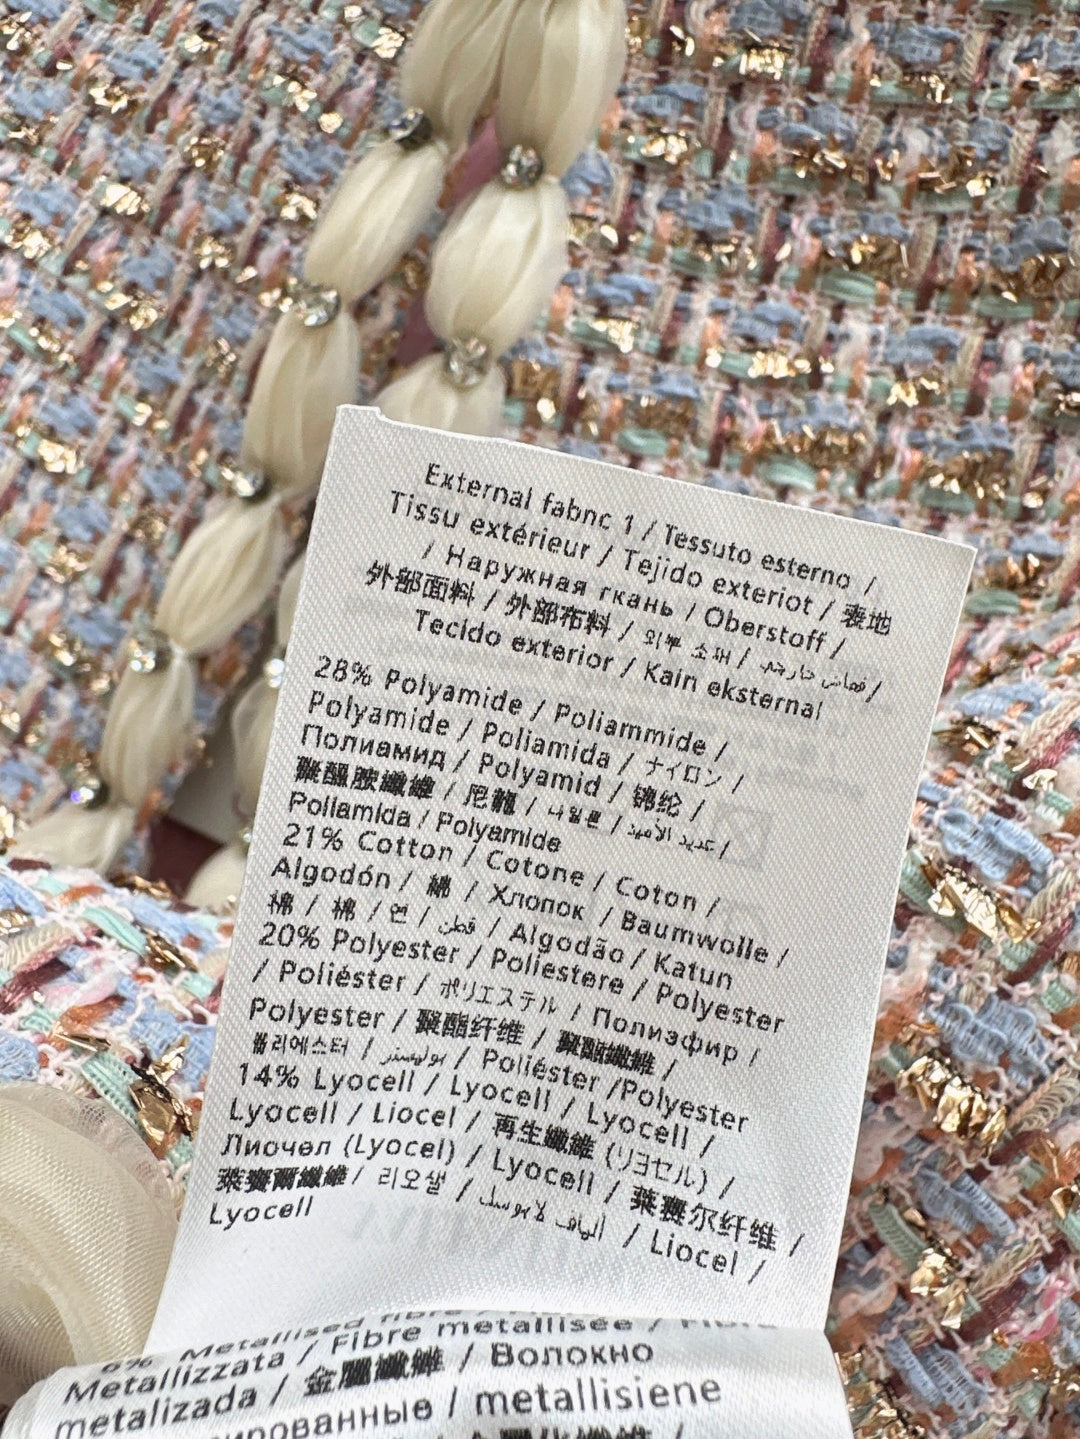 External fabnc 1 / Tessuto esterno /
Tissu extérieur / Tejido exteriot / 表地
/ Наружная гкань / Oberstoff /
外部面料 / 外部布料 / 외부 소재 / /
Tecido exterior / Kain eksternal
28% Polyamide / Poliammide /
Polyamide / Poliamida / ナイロン /
Полиамид / Polyamid / 锦纶 /
纖維 / 尼龍 / 나일론 / /
Poliamida / Polyamide
21% Cotton / Cotone / Coton /
Algodón / 綿 / Хлопок / Baumwolle /
棉 / 棉 / 면 / قطن / Algodão / Katun
20% Polyester / Poliestere / Polyester
/ Poliéster / ポリエステル / Полиэфир /
Polyester / 聚酯纤维 / 聚酯纖維 /
폴리에스터 / بوليستر / Poliéster /Polyester
14% Lyocell / Lyocell / Lyocell /
Lyocell / Liocel / 再生纖維 (リヨセル) /
Лиочел (Lyocel) / Lyocell / 莱赛尔纤维 /
萊賽爾纖維 / 리오셀 / / Liocel /
Lyocell
6% Metallised fibre /
Metallizzata / Fibre metallisée /
metalizada / 金属纖維 / Волокно
metallisiene